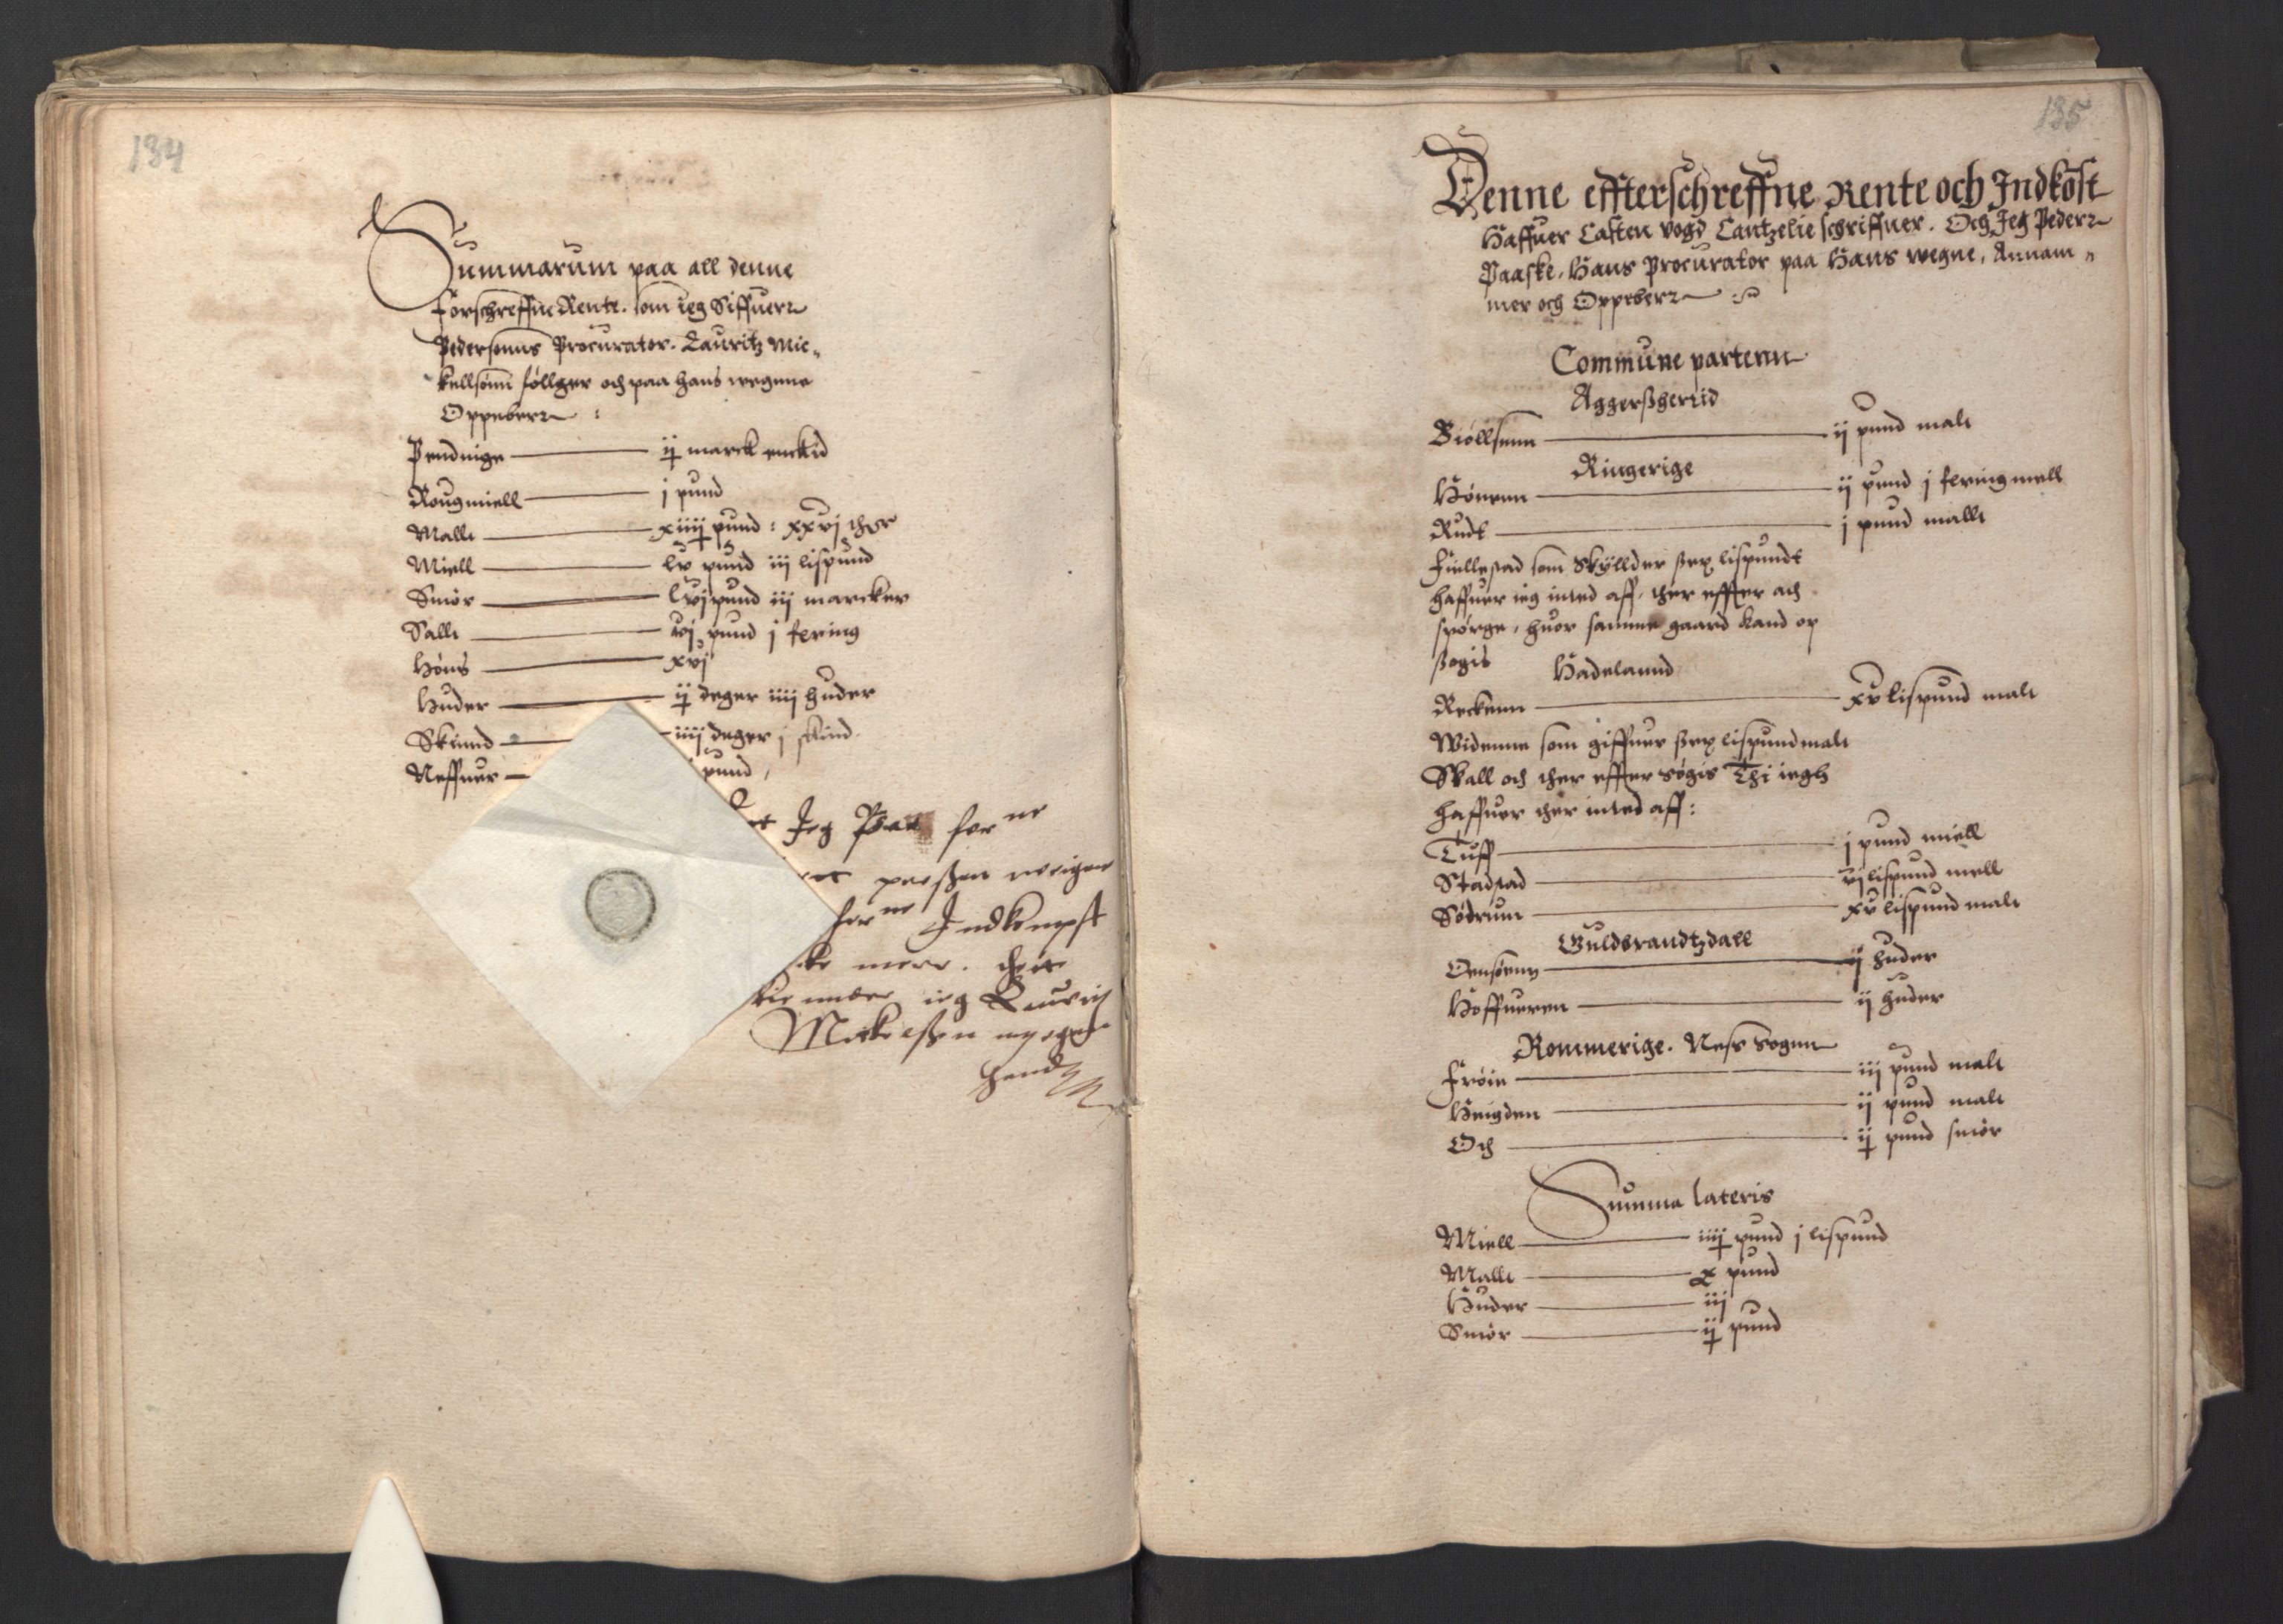 134
Summarum paa all denne
forschreffne Rente. som ieg Siffuerr
Pedersønns Procurator. Lauritz Mic„
kellsønn føllger och paa hans wegnne
Oppeberr :
Pendnige ij marck enckid
Rougmiell j pund
Mallt xiiij pund : xxvj ther
Miell lv pund iij lispund
Smør lvj pund iij marcker
Sallt vj pund j fering
Høns xvj
Huder ij deger iiij huder
Skinnd iiij deger j skind
Neffuer pund
Jeg for ne
wegne
for ne Indkompst
mere.
ieg Lauritz
Mickelsßen myegen
hand
135
Denne effterschreffne Rente och Indkost
Haffuer Casten vogd Cantzelie schriffuer. Och Jeg Pederr
Paaske. Hans Procurator paa Hans wegne, Annam„
mer och Oppeberr
Commune partenn
Aggerßherrid
Biøllsenn ij pund malt
Ringerige
Hønenn ij pund j fering mell
Rudt j pund mallt
Fiellestad som Skyllder sex lispundt
haffuer ieg inted aff, ther effter ath
spørge, huor samme gaard kand op
ßøgis
Hadelannd
Reckenn xv lispund malt
Widenne som giffuer sex lispund malt
Skall och ther effter søgis Thi iegh
haffuer ther inted aff :
Tuff j pund miell
Stadstad vj lispund mell
Södrum xv lispund malt
Guldbrandtzdall
Oensønn ij huder
Hoffueren ij huder
Rommerige. Ness sognn
Frøin iij pund malt
Heigden ij pund malt
Och ij pund smør
Summa lateris
Miell iiij pund j lispund
Mallt x pund
Huder iij
Smør ij pund